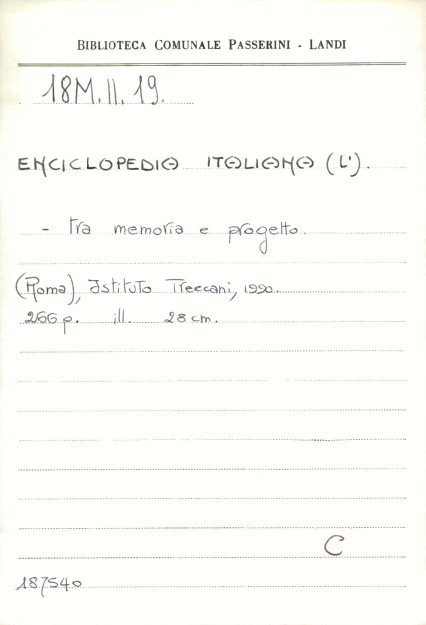 BIBLIOTECA COMUNALE PASSERINI - LANDI
18M.II.19.
ENCICLOPEDIA ITALIANA (L').
- tra memoria e progetto.
(Roma), Istituto Treccani, 1990.
266 p. ill. 28 cm.
C
187540